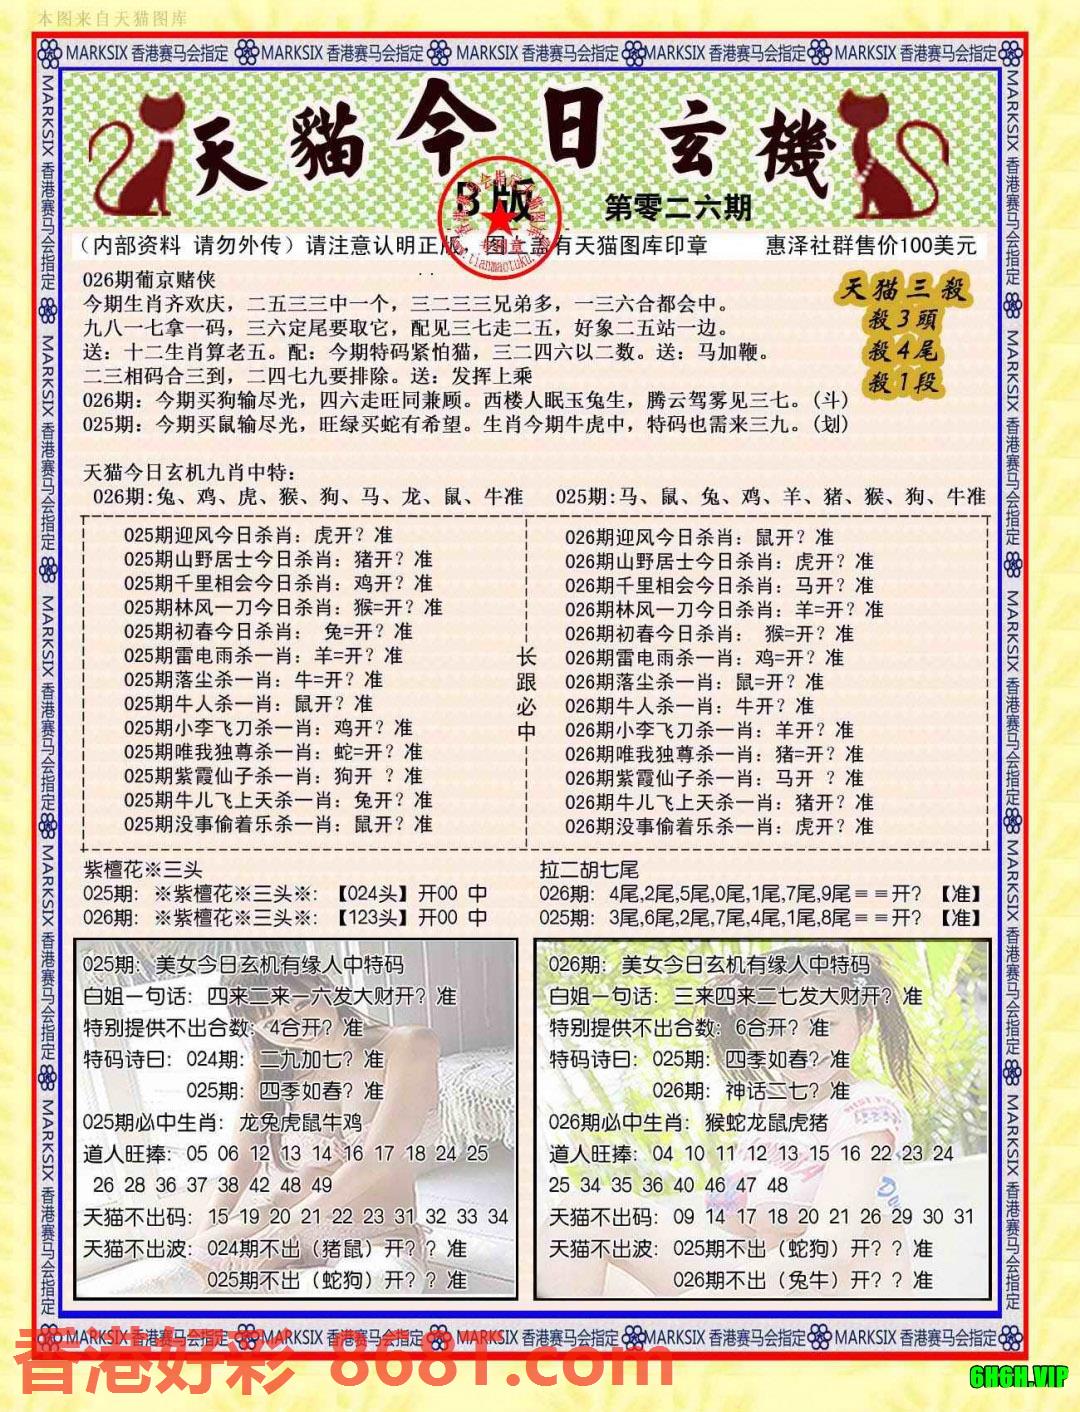 本图来自天猫图库
MARKSIX 香港赛马会指定 MARKSIX 香港赛马会指定 MARKSIX 香港赛马会指定 MARKSIX 香港赛马会指定 MARKSIX 香港赛马会指定
MARKSIX 香港赛马会指定 MARKSIX 香港赛马会指定 MARKSIX 香港赛马会指定 MARKSIX 香港赛马会指定 MARKSIX 香港赛马会指定
天貓今日玄機
B版
第零二六期
www.tianmaotuku.com
（内部资料 请勿外传）请注意认明正版，图上盖有天猫图库印章 惠泽社群售价100美元
026期葡京赌侠
今期生肖齐欢庆，二五三三中一个，三二三三兄弟多，一三六合都会中。
九八一七拿一码，三六定尾要取它，配见三七走二五，好象二五站一边。
送：十二生肖算老五。配：今期特码紧怕猫，三二四六以二数。送：马加鞭。
二三相码合三到，二四七九要排除。送：发挥上乘
天猫三殺
殺3頭
殺4尾
殺1段
026期：今期买狗输尽光，四六走旺同兼顾。西楼人眠玉兔生，腾云驾雾见三七。(斗)
025期：今期买鼠输尽光，旺绿买蛇有希望。生肖今期牛虎中，特码也需来三九。(划)
天猫今日玄机九肖中特：
026期:兔、鸡、虎、猴、狗、马、龙、鼠、牛准 025期:马、鼠、兔、鸡、羊、猪、猴、狗、牛准
025期迎风今日杀肖：虎开？准
025期山野居士今日杀肖：猪开？准
025期千里相会今日杀肖：鸡开？准
025期林风一刀今日杀肖：猴=开？准
025期初春今日杀肖： 兔=开？准
025期雷电雨杀一肖：羊=开？准
025期落尘杀一肖：牛=开？准
025期牛人杀一肖：鼠开？准
025期小李飞刀杀一肖：鸡开？准
025期唯我独尊杀一肖：蛇=开？准
025期紫霞仙子杀一肖：狗开 ？准
025期牛儿飞上天杀一肖：兔开？准
025期没事偷着乐杀一肖：鼠开？准
长跟必中
026期迎风今日杀肖：鼠开？准
026期山野居士今日杀肖：虎开？准
026期千里相会今日杀肖：马开？准
026期林风一刀今日杀肖：羊=开？准
026期初春今日杀肖： 猴=开？准
026期雷电雨杀一肖：鸡=开？准
026期落尘杀一肖：鼠=开？准
026期牛人杀一肖：牛开？准
026期小李飞刀杀一肖：羊开？准
026期唯我独尊杀一肖：猪=开？准
026期紫霞仙子杀一肖：马开 ？准
026期牛儿飞上天杀一肖：猪开？准
026期没事偷着乐杀一肖：虎开？准
紫檀花※三头
025期：※紫檀花※三头※：【024头】开00 中
026期：※紫檀花※三头※：【123头】开00 中
拉二胡七尾
026期：4尾,2尾,5尾,0尾,1尾,7尾,9尾==开？【准】
025期：3尾,6尾,2尾,7尾,4尾,1尾,8尾==开？【准】
025期：美女今日玄机有缘人中特码
白姐一句话：四来二来一六发大财开？准
特别提供不出合数：4合开？准
特码诗曰：024期：二九加七？准
025期：四季如春？准
025期必中生肖：龙兔虎鼠牛鸡
道人旺捧：05 06 12 13 14 16 17 18 24 25
26 28 36 37 38 42 48 49
天猫不出码：15 19 20 21 22 23 31 32 33 34
天猫不出波：024期不出（猪鼠）开？？准
025期不出（蛇狗）开？？准
026期：美女今日玄机有缘人中特码
白姐一句话：三来四来二七发大财开？准
特别提供不出合数：6合开？准
特码诗曰：025期：四季如春？准
026期：神话二七？准
026期必中生肖：猴蛇龙鼠虎猪
道人旺捧：04 10 11 12 13 15 16 22 23 24
25 34 35 36 40 46 47 48
天猫不出码：09 14 17 18 20 21 26 29 30 31
天猫不出波：025期不出（蛇狗）开？？准
026期不出（兔牛）开？？准
MARKSIX 香港赛马会指定 MARKSIX 香港赛马会指定 MARKSIX 香港赛马会指定 MARKSIX 香港赛马会指定 MARKSIX 香港赛马会指定
MARKSIX 香港赛马会指定 MARKSIX 香港赛马会指定 MARKSIX 香港赛马会指定 MARKSIX 香港赛马会指定 MARKSIX 香港赛马会指定
香港好彩 8681.com
6H6H.VIP